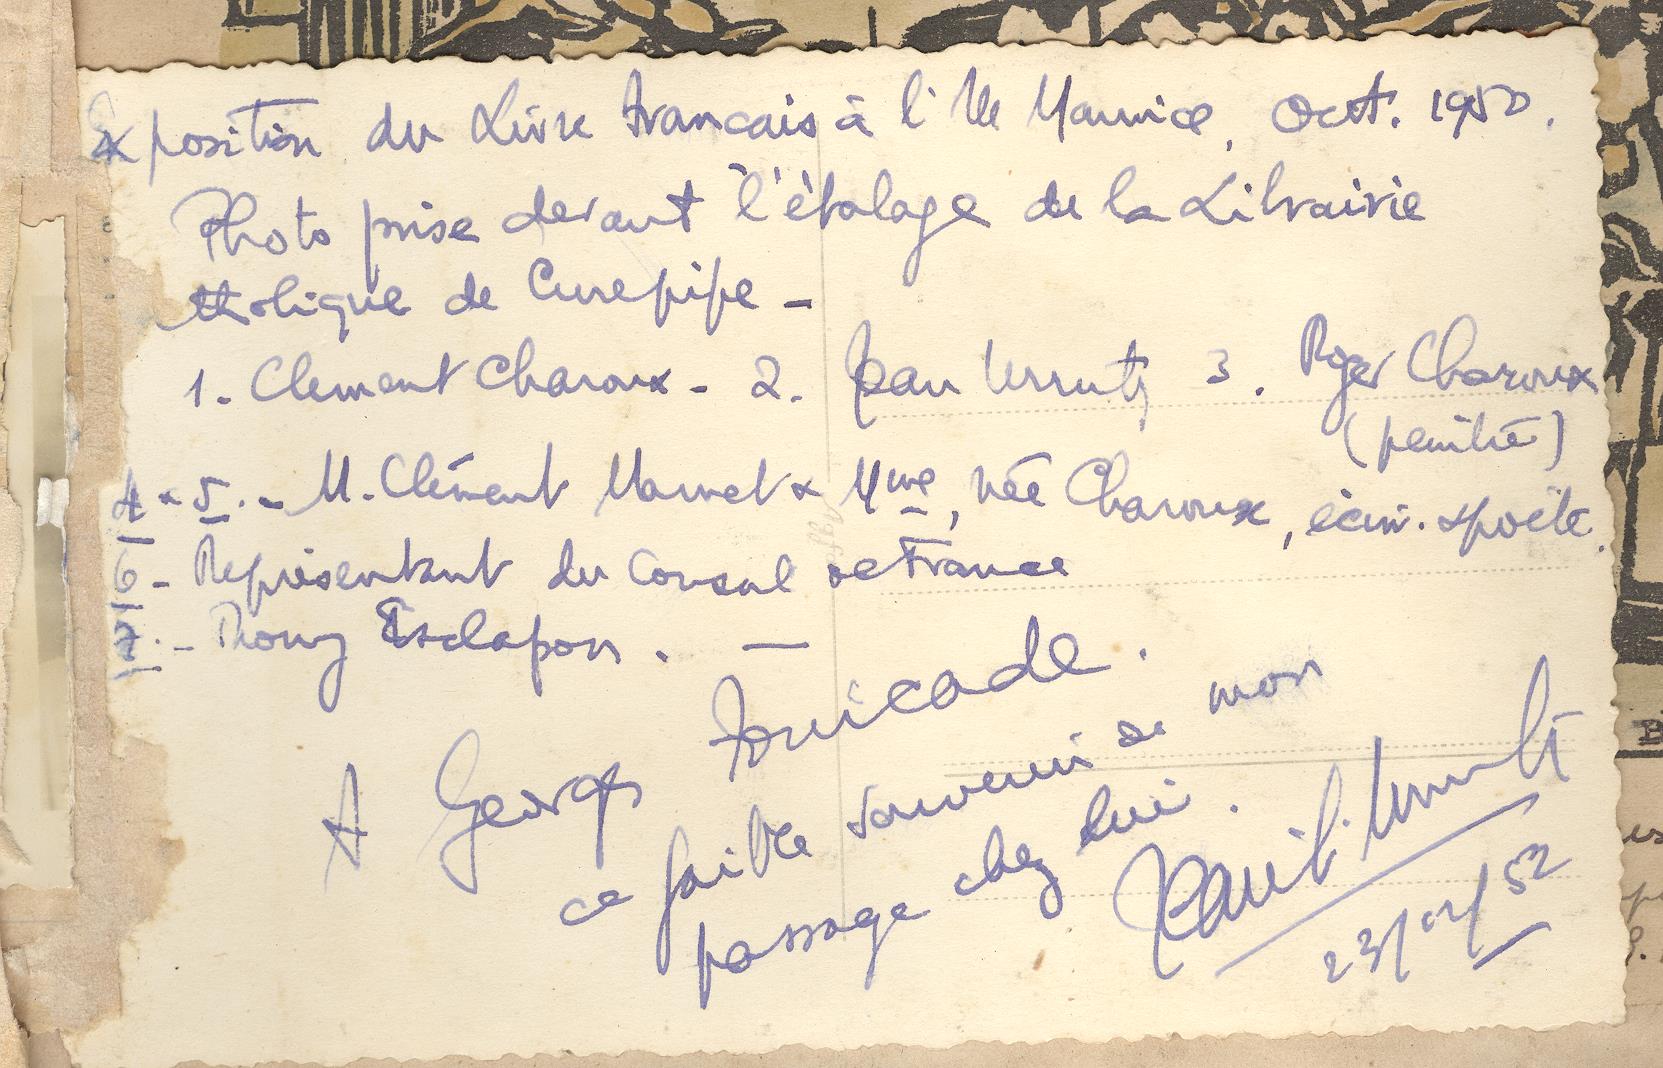 Exposition du Livre français à l'Ile Maurice, Oct. 1950.
Photo prise devant l'étalage de la Librairie
tholique de Curepipe -
1. Clément Charoux - 2. Jean Urruty 3. Roger Charoux
(peintre)
4 & 5. - M. Clément Mamet & Mme, née Charoux, écriv. & poète.
6 - Représentant du Consul de France
7. - Esclapon. -
A Georges
ce faible souvenir de mon
passage chez lui.
Urruty
23/ /52